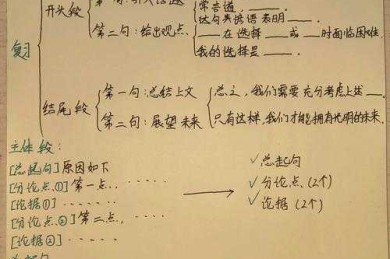 常言道，____。
开头段
这句英谚语表明____。
第二句：给出观点、
____在选择____或____时面临困难.
我的选择是____.
复习
结尾段
第一句：总结上文
总之，我们需要充分考虑上述__.
第二句：展望未来
只有这样，我们才能拥有光明的未来.
主体段：
[总起句]原因如下
[分论点①]第一点、. . . . .
[论据①]. . . . . .
[分论点②]第二点，. . . . .
[论据②]. . . . .
√总起句
√分论点(2个)
√论据(2个)